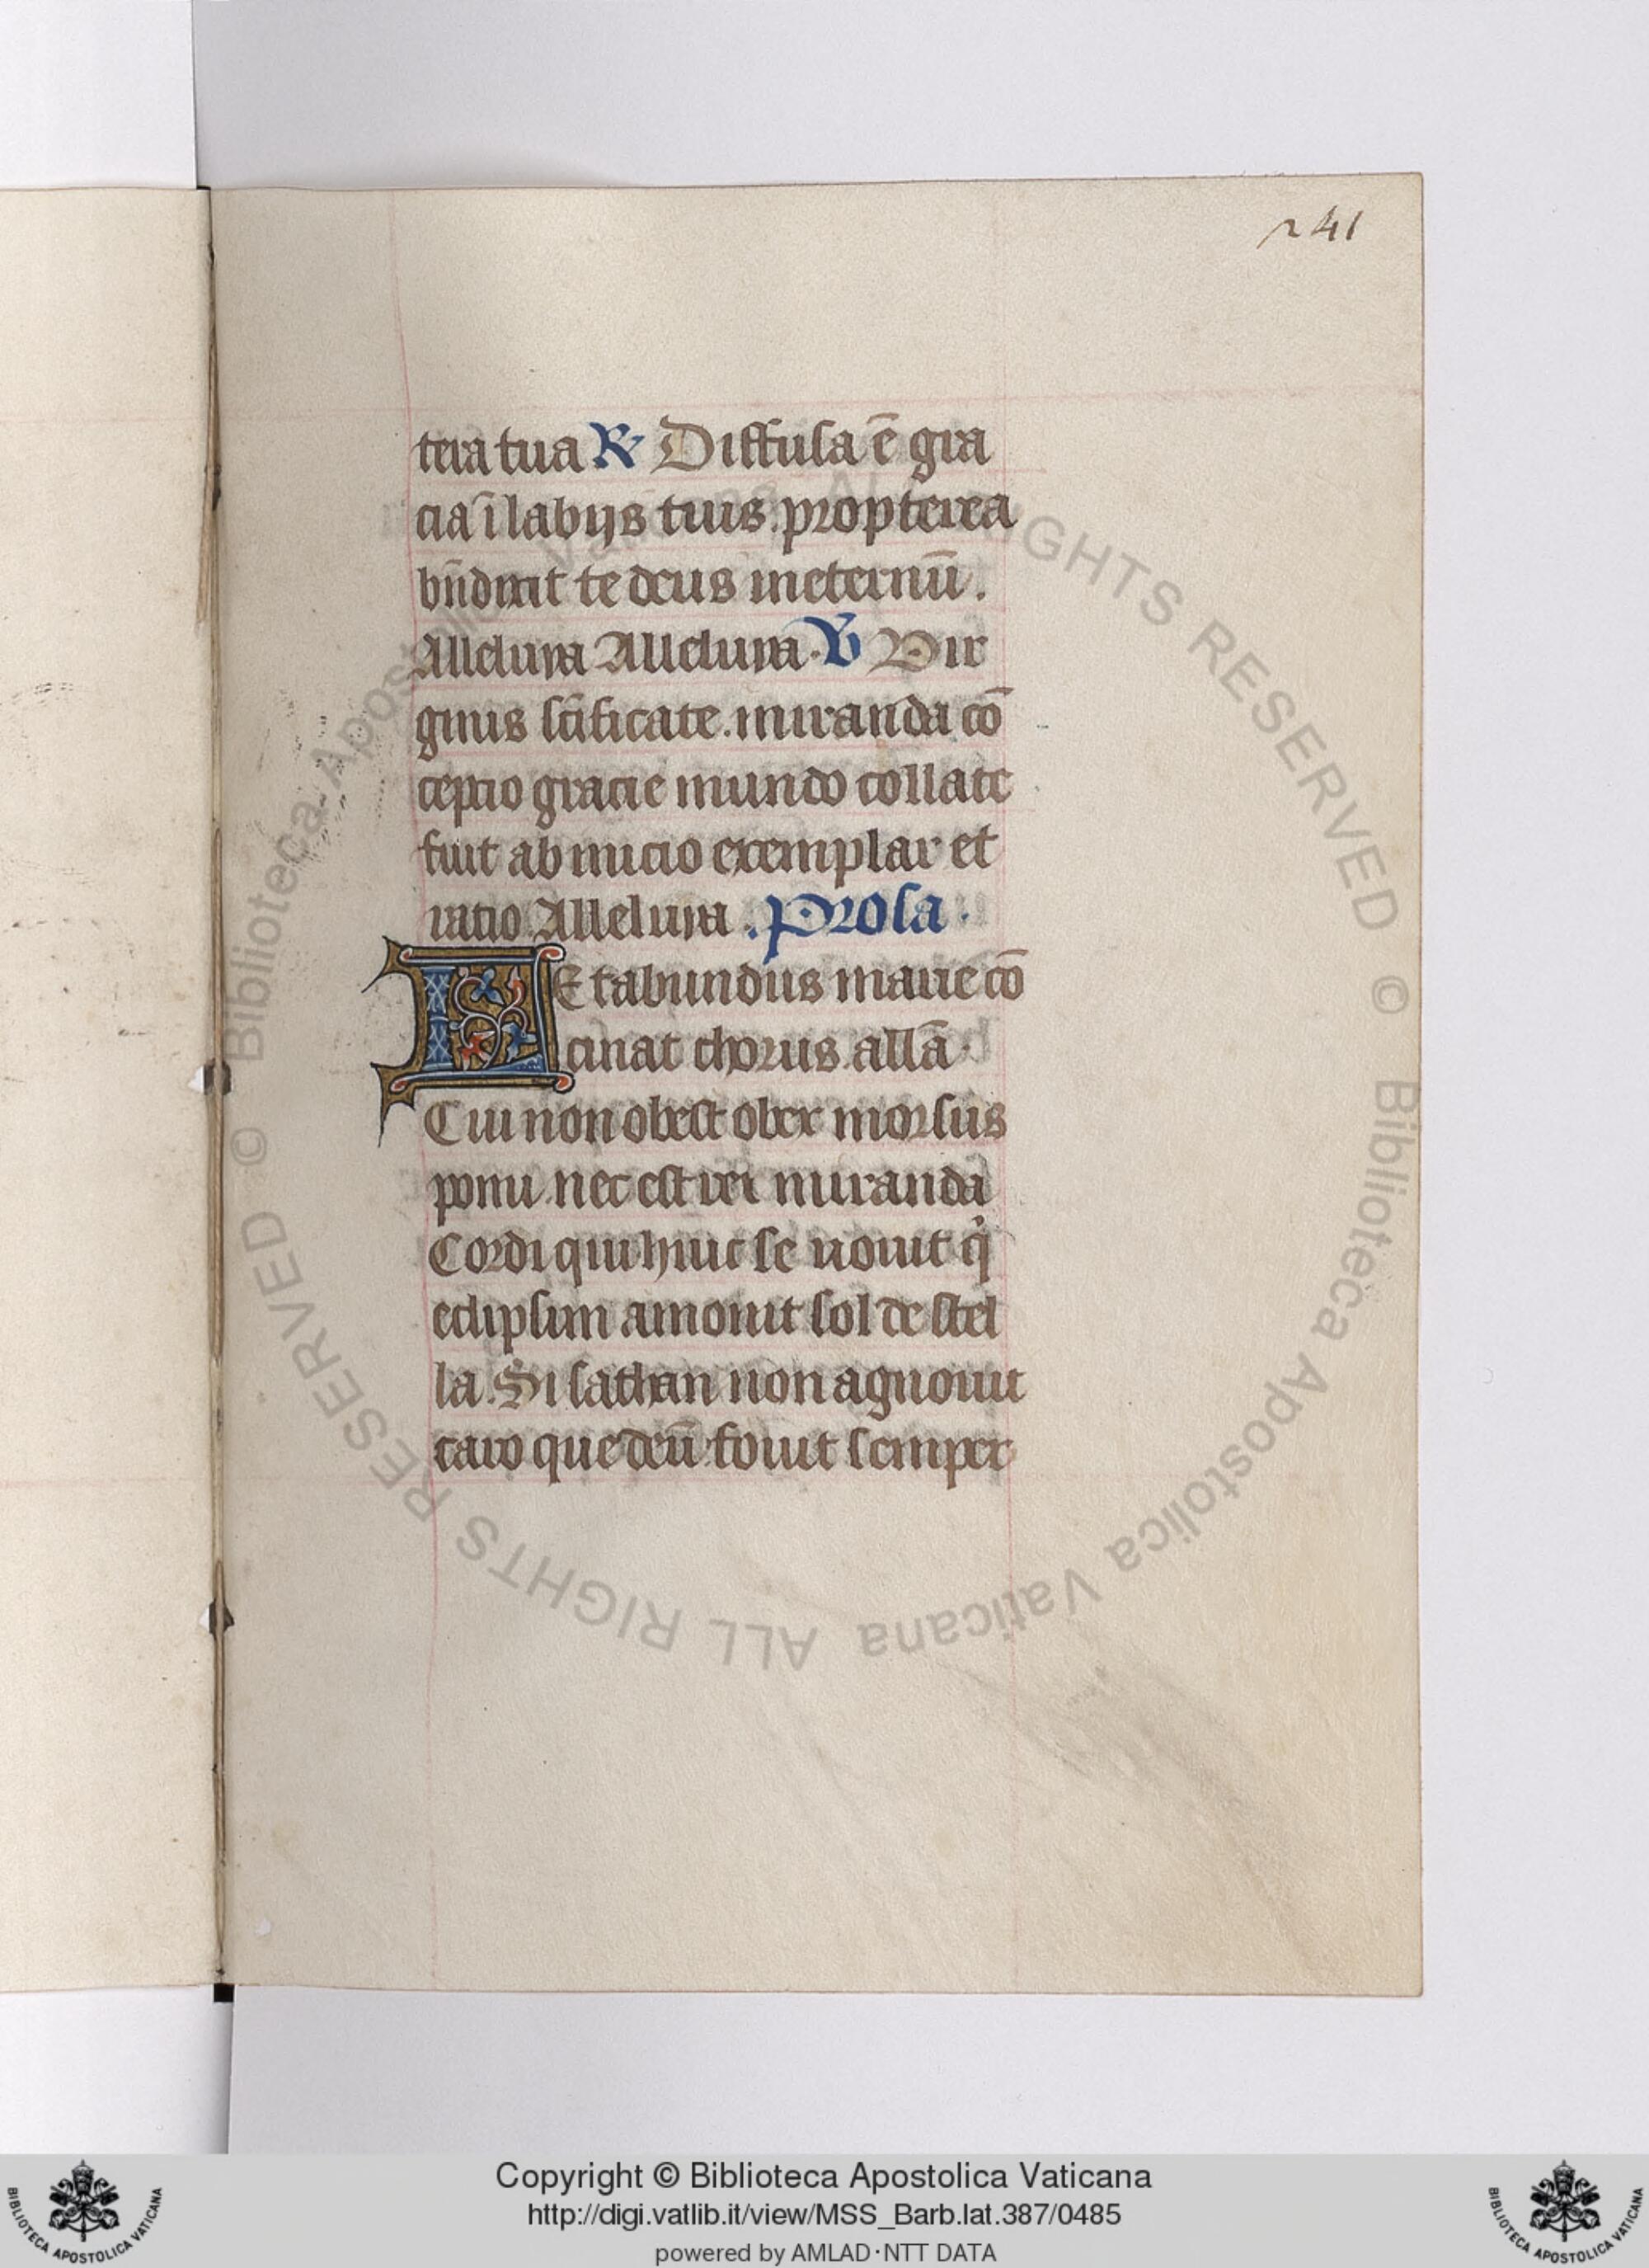 241
tera tua ℟ Diffusa ē gra
cia ī labijs tuis. propterea
bn̄dixit te deus ineternū.
Alleluya Alleluya. ℣ Vir
ginis sc̄ificate. miranda cō
cepcio gracie mundo collate
fuit ab inicio exemplar et
racio. Alleluya. Prosa.
LEtabundus marie cō
cinat chorus. allā.
Cui non obest obex morsus
pomi. nec est rei miranda
Cordi qui hinc se nouit qͥ
eclipsim amouit sol de stel
la. Si sathan non agnouit
caro que deū fouit semper
Biblioteca Apostolica Vaticana ALL RIGHTS RESERVED ©
Biblioteca Apostolica Vaticana ALL RIGHTS RESERVED ©
Copyright © Biblioteca Apostolica Vaticana
http://digi.vatlib.it/view/MSS_Barb.lat.387/0485
powered by AMLAD·NTT DATA
BIBLIOTECA APOSTOLICA VATICANA
BIBLIOTECA APOSTOLICA VATICANA